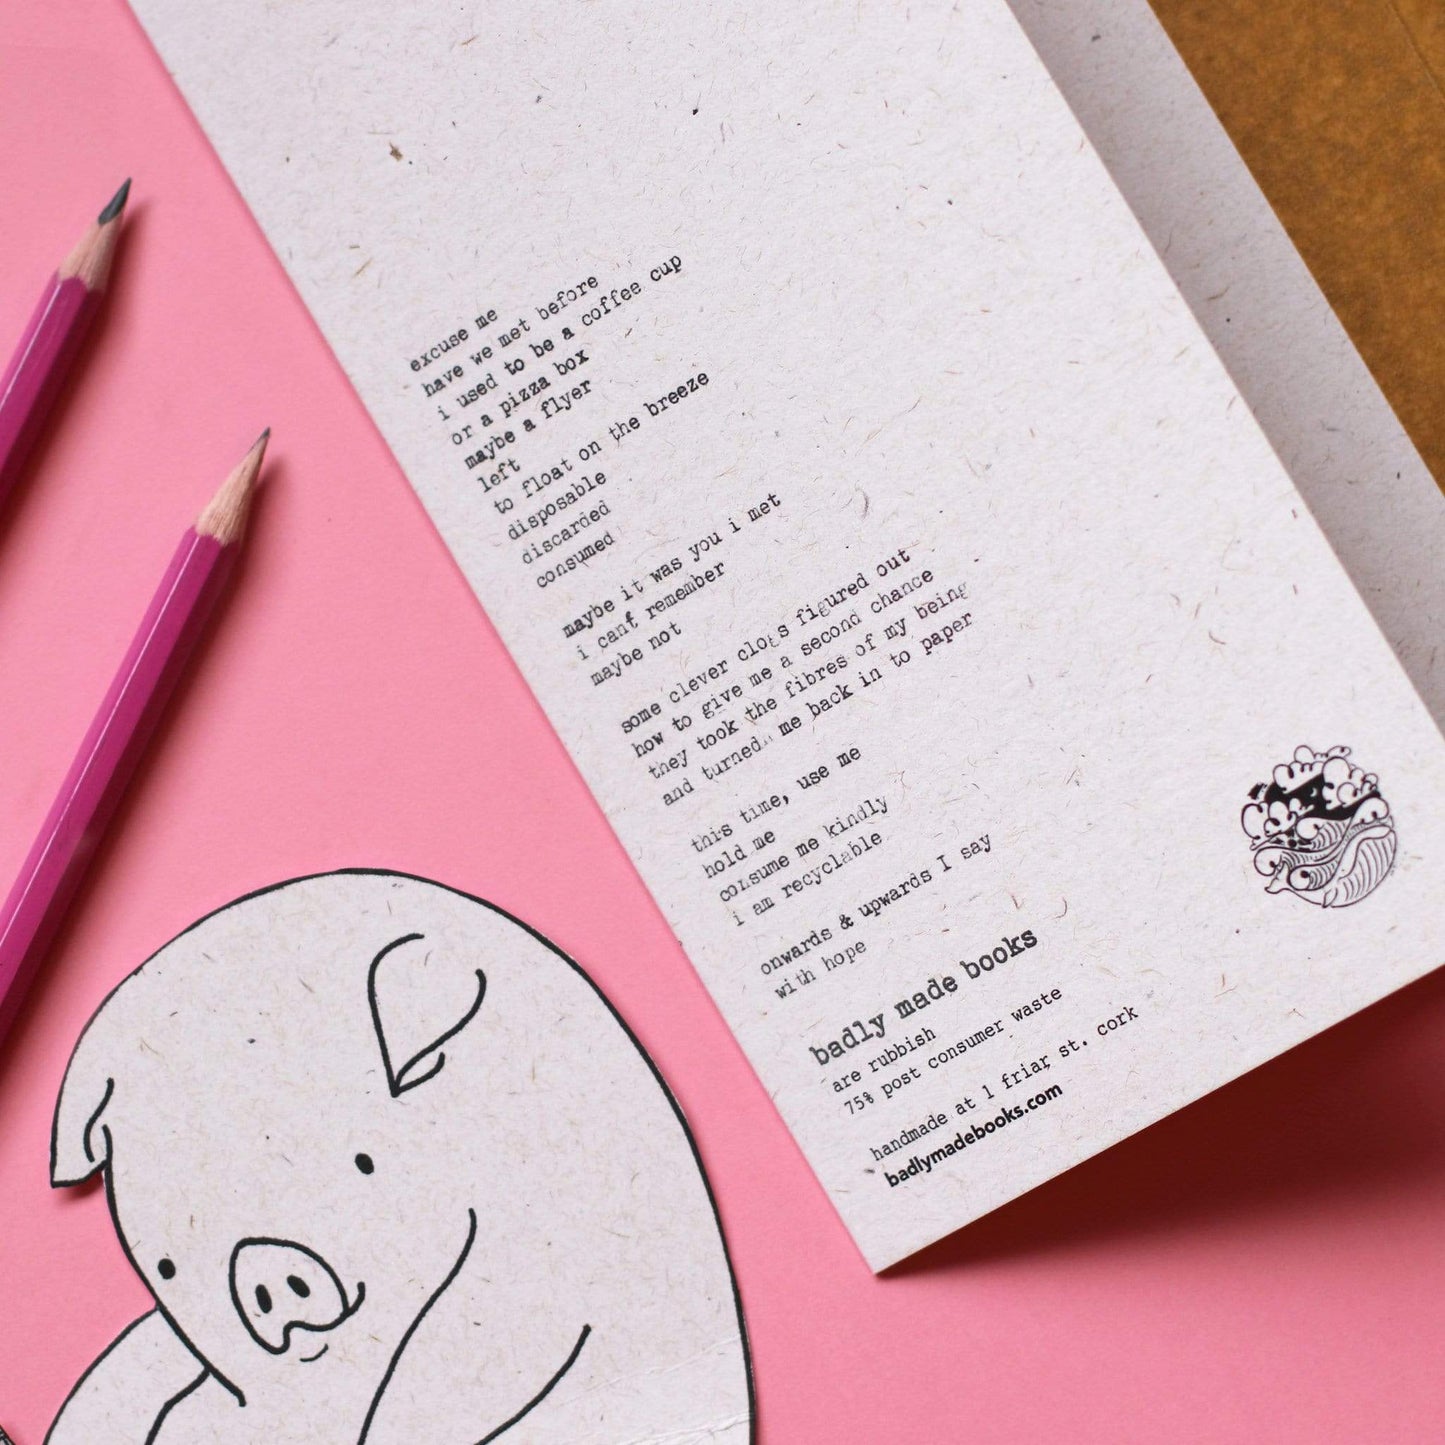 excuse me
have we met before
i used to be a coffee cup
or a pizza box
maybe a flyer
left
to float on the breeze
disposable
discarded
consumed
maybe it was you i met
i cant remember
maybe not
some clever clogs figured out
how to give me a second chance
they took the fibres of my being
and turned me back in to paper
this time, use me
hold me
consume me kindly
i am recyclable
onwards & upwards I say
with hope
badly made books
are rubbish
75% post consumer waste
handmade at 1 friar st. cork
badlymadebooks.com